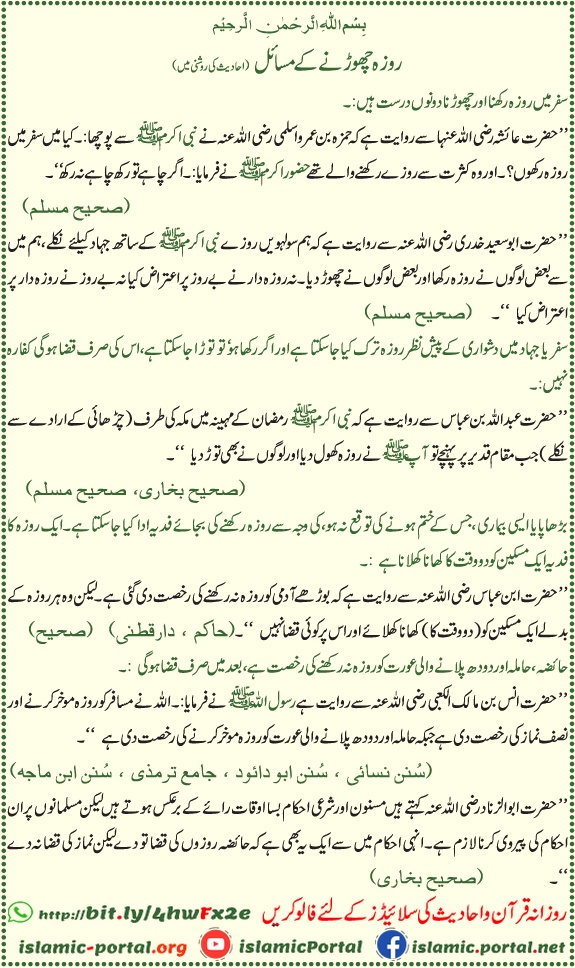 بِسْمِ اللهِ الرَّحْمٰنِ الرَّحِيْمِ
روزہ چھوڑنے کے مسائل (احادیث کی روشنی میں)
سفر میں روزہ رکھنا اور چھوڑنا دونوں درست ہیں:۔
’’حضرت عائشہ رضی اللہ عنہا سے روایت ہے کہ حمزہ بن عمرو اسلمی رضی اللہ عنہ نے نبی اکرم ﷺ سے پوچھا:۔ کیا میں سفر میں
روزہ رکھوں؟۔ اور وہ کثرت سے روزے رکھنے والے تھے حضور اکرم ﷺ نے فرمایا:۔ اگر چاہے تو رکھ چاہے نہ رکھ‘‘۔
(صحیح مسلم)
’’حضرت ابو سعید خدری رضی اللہ عنہ سے روایت ہے کہ ہم سولہویں روزے نبی اکرم ﷺ کے ساتھ جہاد کیلئے نکلے، ہم میں
سے بعض لوگوں نے روزہ رکھا اور بعض لوگوں نے چھوڑ دیا۔ نہ روزہ دار نے بے روز پر اعتراض کیا نہ بے روز نے روزہ دار پر
اعتراض کیا ‘‘۔ (صحیح مسلم)
سفر یا جہاد میں دشواری کے پیش نظر روزہ ترک کیا جا سکتا ہے اور اگر رکھا ہو تو توڑا جا سکتا ہے، اس کی صرف قضا ہوگی کفارہ
نہیں:۔
’’حضرت عبداللہ بن عباس سے روایت ہے کہ نبی اکرم ﷺ رمضان کے مہینہ میں مکہ کی طرف (چڑھائی کے ارادے سے
نکلے) جب مقام قدیر پر پہنچے تو آپ ﷺ نے روزہ کھول دیا اور لوگوں نے بھی توڑ دیا ‘‘۔
(صحیح بخاری، صحیح مسلم)
بڑھاپا یا ایسی بیماری، جس کے ختم ہونے کی توقع نہ ہو، کی وجہ سے روزہ رکھنے کی بجائے فدیہ ادا کیا جا سکتا ہے۔ ایک روزہ کا
فدیہ ایک مسکین کو دو وقت کا کھانا کھلانا ہے :۔
’’حضرت ابن عباس رضی اللہ عنہ سے روایت ہے کہ بوڑھے آدمی کو روزہ نہ رکھنے کی رخصت دی گئی ہے۔ لیکن وہ ہر روزہ کے
بدلے ایک مسکین کو (دو وقت کا) کھانا کھلائے اور اس پر کوئی قضا نہیں ‘‘۔ (حاکم ، دارقطنی) (صحیح)
حائضہ، حاملہ اور دودھ پلانے والی عورت کو روزہ نہ رکھنے کی رخصت ہے، بعد میں صرف قضا ہوگی :۔
’’حضرت انس بن مالک الکعبی رضی اللہ عنہ سے روایت ہے رسول اللہ ﷺ نے فرمایا:۔ اللہ نے مسافر کو روزہ موخر کرنے اور
نصف نماز کی رخصت دی ہے جبکہ حاملہ اور دودھ پلانے والی عورت کو روزہ موخر کرنے کی رخصت دی ہے ‘‘۔
(سُنن نسائی ، سُنن ابو دائود ، جامع ترمذی ، سُنن ابن ماجہ)
’’حضرت ابوالزناد رضی اللہ عنہ کہتے ہیں مسنون اور شرعی احکام بسا اوقات رائے کے برعکس ہوتے ہیں لیکن مسلمانوں پر ان
احکام کی پیروی کرنا لازم ہے۔ انہی احکام میں سے ایک یہ بھی ہے کہ حائضہ روزوں کی قضا تو دے لیکن نماز کی قضا نہ دے
‘‘۔ (صحیح بخاری)
روزانہ قرآن و احادیث کی سلائیڈز کے لئے فالو کریں http://bit.ly/4hwFx2e
islamic-portal.org islamicPortal islamic.portal.net